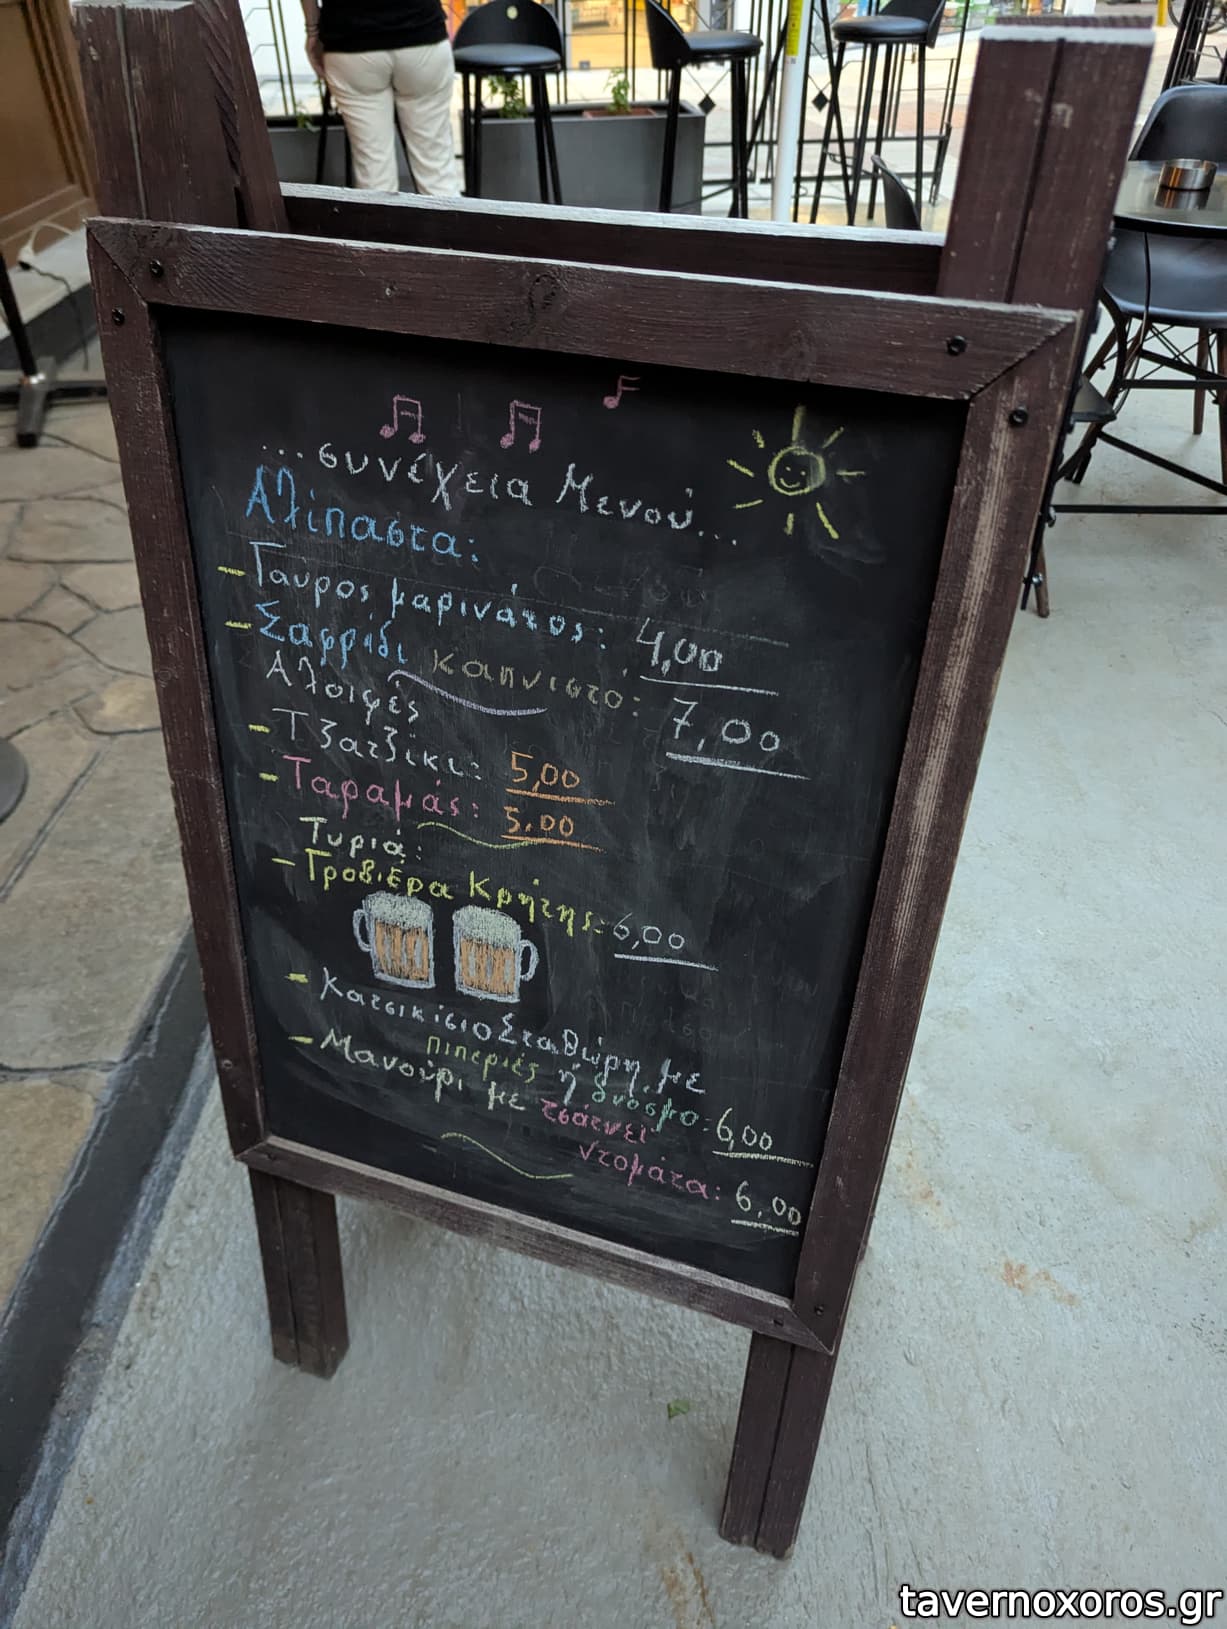 ...συνέχεια Μενού...
Αλίπαστα:
- Γαύρος μαρινάτος: 4,00
- Σαφρίδι καπνιστό: 7,00
Αλοιφές
- Τζατζίκι: 5,00
- Ταραμάς: 5.00
Τυριά:
- Γροβιέρα Κρήτης: 6,00
- Κατσικίσιο Σταθώρη με
πιπεριές ή δυόσμο: 6,00
- Μανούρι με τσάτνεϊ
ντομάτα: 6,00
tavernoxoros.gr